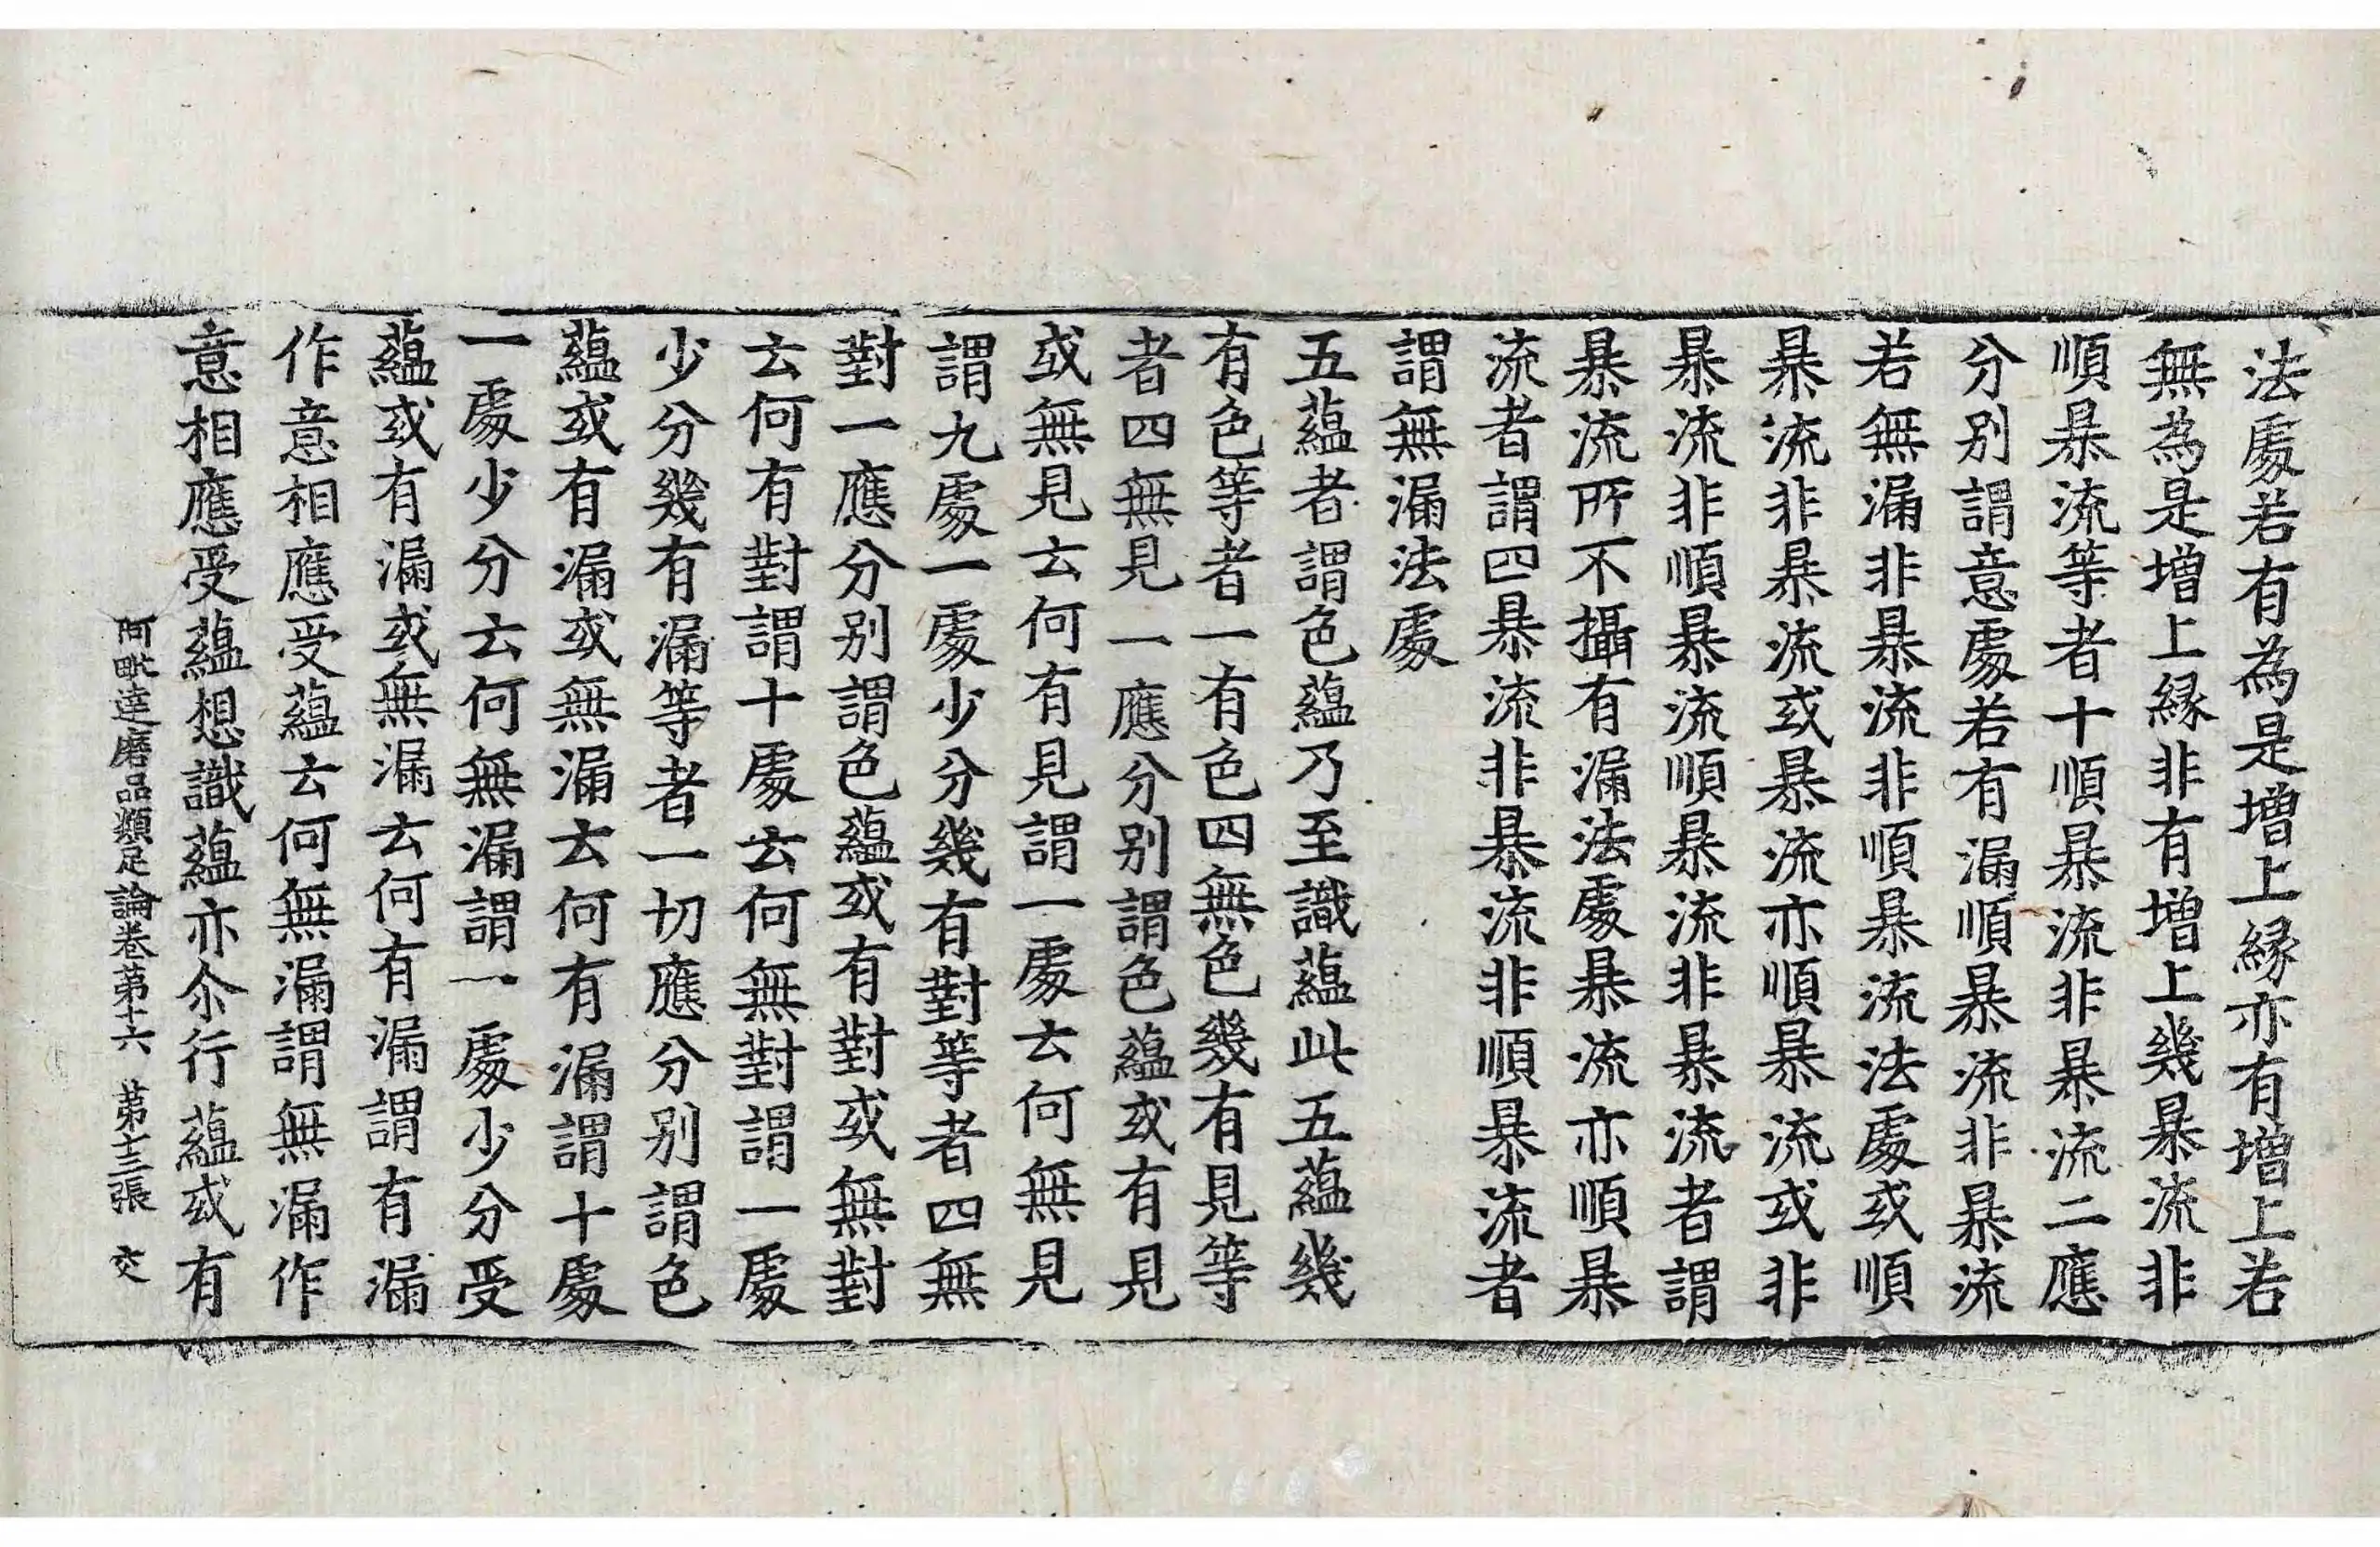 法處若有為是增上縁亦有增上若
無為是增上縁非有增上幾暴流非
順暴流等者十順暴流非暴流二應
分别謂意處若有漏順暴流非暴流
若無漏非暴流非順暴流法處或順
暴流非暴流或暴流亦順暴流或非
暴流非順暴流順暴流非暴流者謂
暴流所不攝有漏法處暴流亦順暴
流者謂四暴流非暴流非順暴流者
謂無漏法處
五蘊者謂色蘊乃至識蘊此五蘊幾
有色等者一有色四無色幾有見等
者四無見一應分别謂色蘊或有見
或無見云何有見謂一處云何無見
謂九處一處少分幾有對等者四無
對一應分别謂色蘊或有對或無對
云何有對謂十處云何無對謂一處
少分幾有漏等者一切應分别謂色
蘊或有漏或無漏云何有漏謂十處
一處少分云何無漏謂一處少分受
蘊或有漏或無漏云何有漏謂有漏
作意相應受蘊云何無漏謂無漏作
意相應受蘊想識蘊亦尒行蘊或有
阿毗達磨品類足論卷苐十六 苐十三張 交